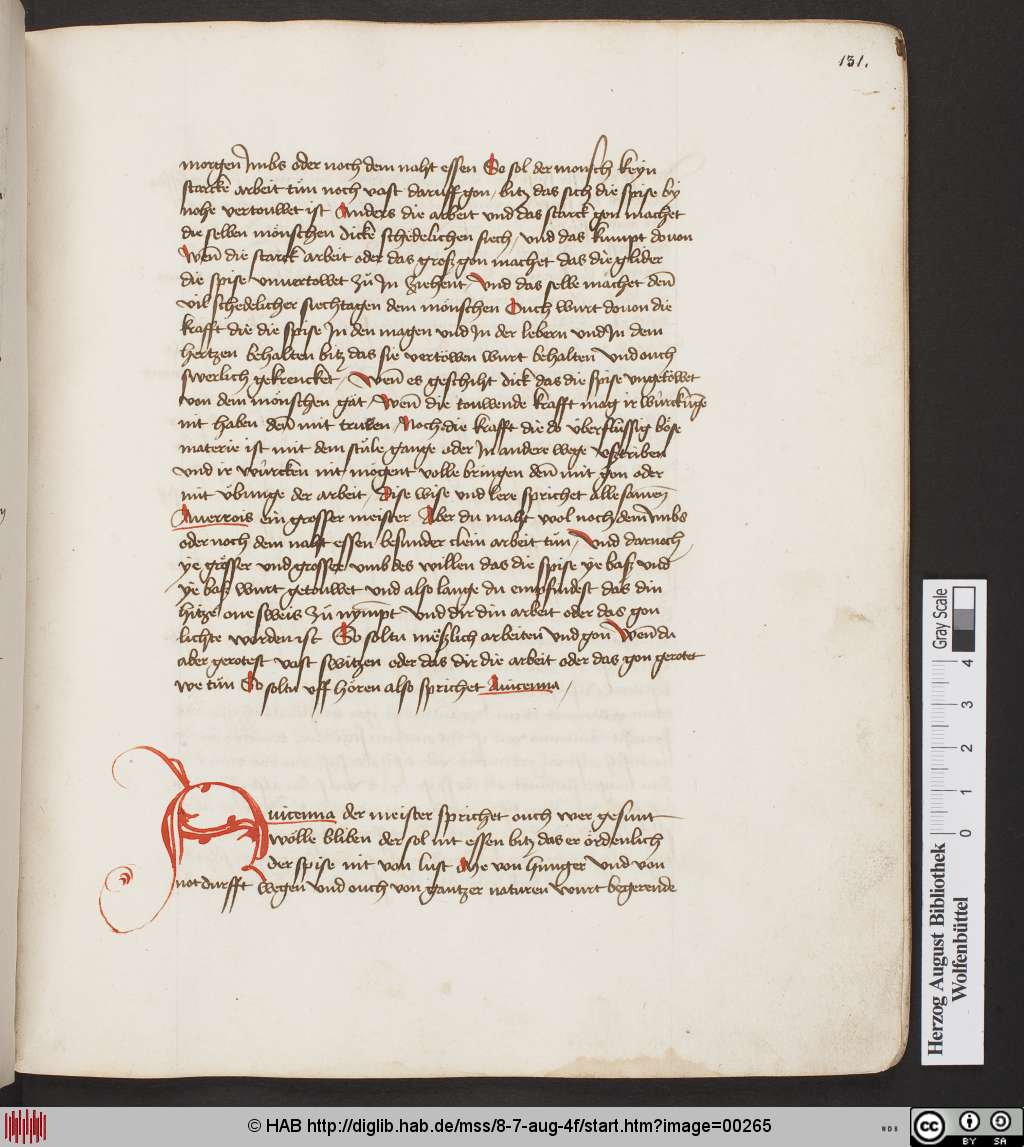 131.
morgen Jmbs oder noch dem naht essen So sol der mönsch keyn
starcke arbeit tůn noch vast daruff gon / bitz das sich die spise by
nohe vertouwet ist Anders die arbeit vnd das starck gon machet
die selben mönschen dicke schedelichen siech / vnd das kumpt douon
Wen̄ die starck arbeit oder das groß gon machet das die glider
die spise vnuertowet zů Jn ziehent / vnd das selbe machet den̄
vil schedelicher siechtagen dem mönschen Ouch wurt douon die
krafft die die spise Jn den magen vnd Jn der lebern vnd Jn dem
hertzen behalten bitz das sie vertöwen wurt behalten̄ vnd ouch
swerlich gekrencket / Wen̄ es geschiht dick das die spise vngetöwet
von dem mönschen gat / Wen̄ die touwende krafft mag ir würckūge
nit haben den̄ mit ruwen / Noch die krafft die do überflüssig böse
materie ist mit dem stůle gange oder Jn andere wege vßtriben
vnd ir würcken nit mögent volle bringen den̄ mit gon oder
mit übunge der arbeit / Dise wise vnd lere sprichet alle samen
Auerrois ein grosser meister Aber du maht wol noch dem Jmbs
oder noch dem naht essen besunder clein arbeit tůn / vnd darnach
ye grösser vnd grösser vmb des willen das die spise ye baß vnd
ye baß wurt getouwet vnd also lange du empfindest das din
hitze one sweis zů nympt vnd dir din arbeit oder das gon
lichte worden ist So soltu meßlich arbeiten vnd gon Wen̄ du
aber gerotest vast switzen oder das dir die arbeit oder das gon gerotet
we tůn So soltu vff hören also sprichet Auicenna /
Auicenna der meister sprichet ouch wer gesunt
wölle bliben der sol nit essen bitz das er ordenlich
der spise nit von lust Me von hunger vnd von
notdurfft wegen vnd ouch von gantzer naturen wurt begerende
Herzog August Bibliothek
Wolfenbüttel
Gray Scale
0 1 2 3 4
© HAB http://diglib.hab.de/mss/8-7-aug-4f/start.htm?image=00265
WDB
cc BY SA